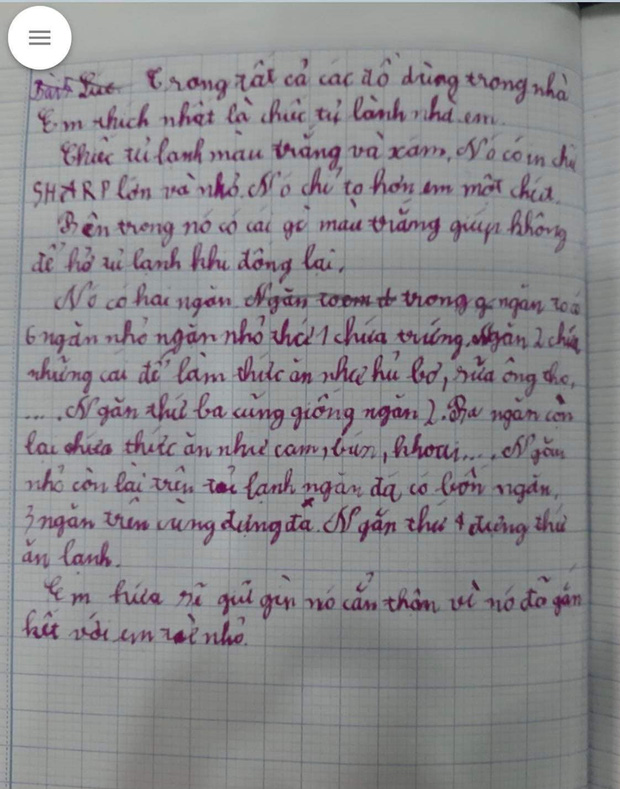 Trong tất cả các đồ dùng trong nhà
Em thích nhất là chiếc tủ lành nhà em.
Chiếc tủ lanh màu trắng và xám. Nó có in chữ
SHARP lớn và nhỏ. Nó chỉ to hơn em một chút.
Bên trong nó có cái gờ màu trắng giúp không
để hở tủ lạnh khi đông lại.
Nó có hai ngăn trong ngăn to có
6 ngăn nhỏ ngăn nhỏ thứ 1 chứa trứng. Ngăn 2 chứa
những cái để làm thức ăn như hủ bơ, sữa ông thọ,
.... Ngăn thứ ba cũng giống ngăn 2. Ba ngăn còn
lại chứa thức ăn như cam, bún, khoai.... Ngăn
nhỏ còn lại trên lanh ngăn đá có bốn ngăn,
3 ngăn trên cùng đựng đá. Ngăn thứ 4 đựng thứ
ăn lanh.
Em hứa sẽ giữ gìn nó cẩn thân vì nó đã gắn
kết với em nhỏ.